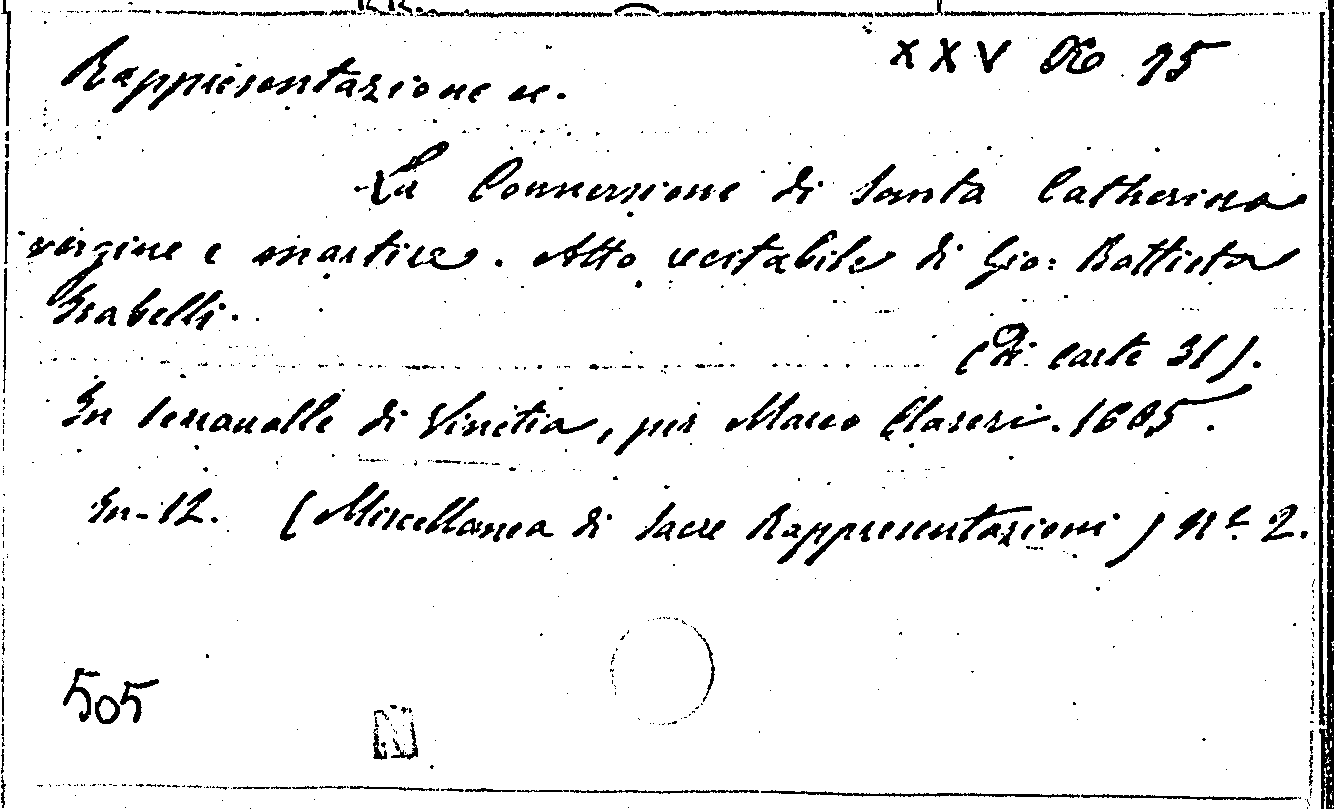 Rappresentazione ec. XXV 95
La Conuersione di Santa Catherina
vergine e martire. Atto recitabile di Gio: Battista
(Di carte 31).
In Serraualle di Vinetia, per Marco Claseri. 1605.
In-12. (Miscellanea di Sacre Rappresentazioni) N.º 2.
505
N